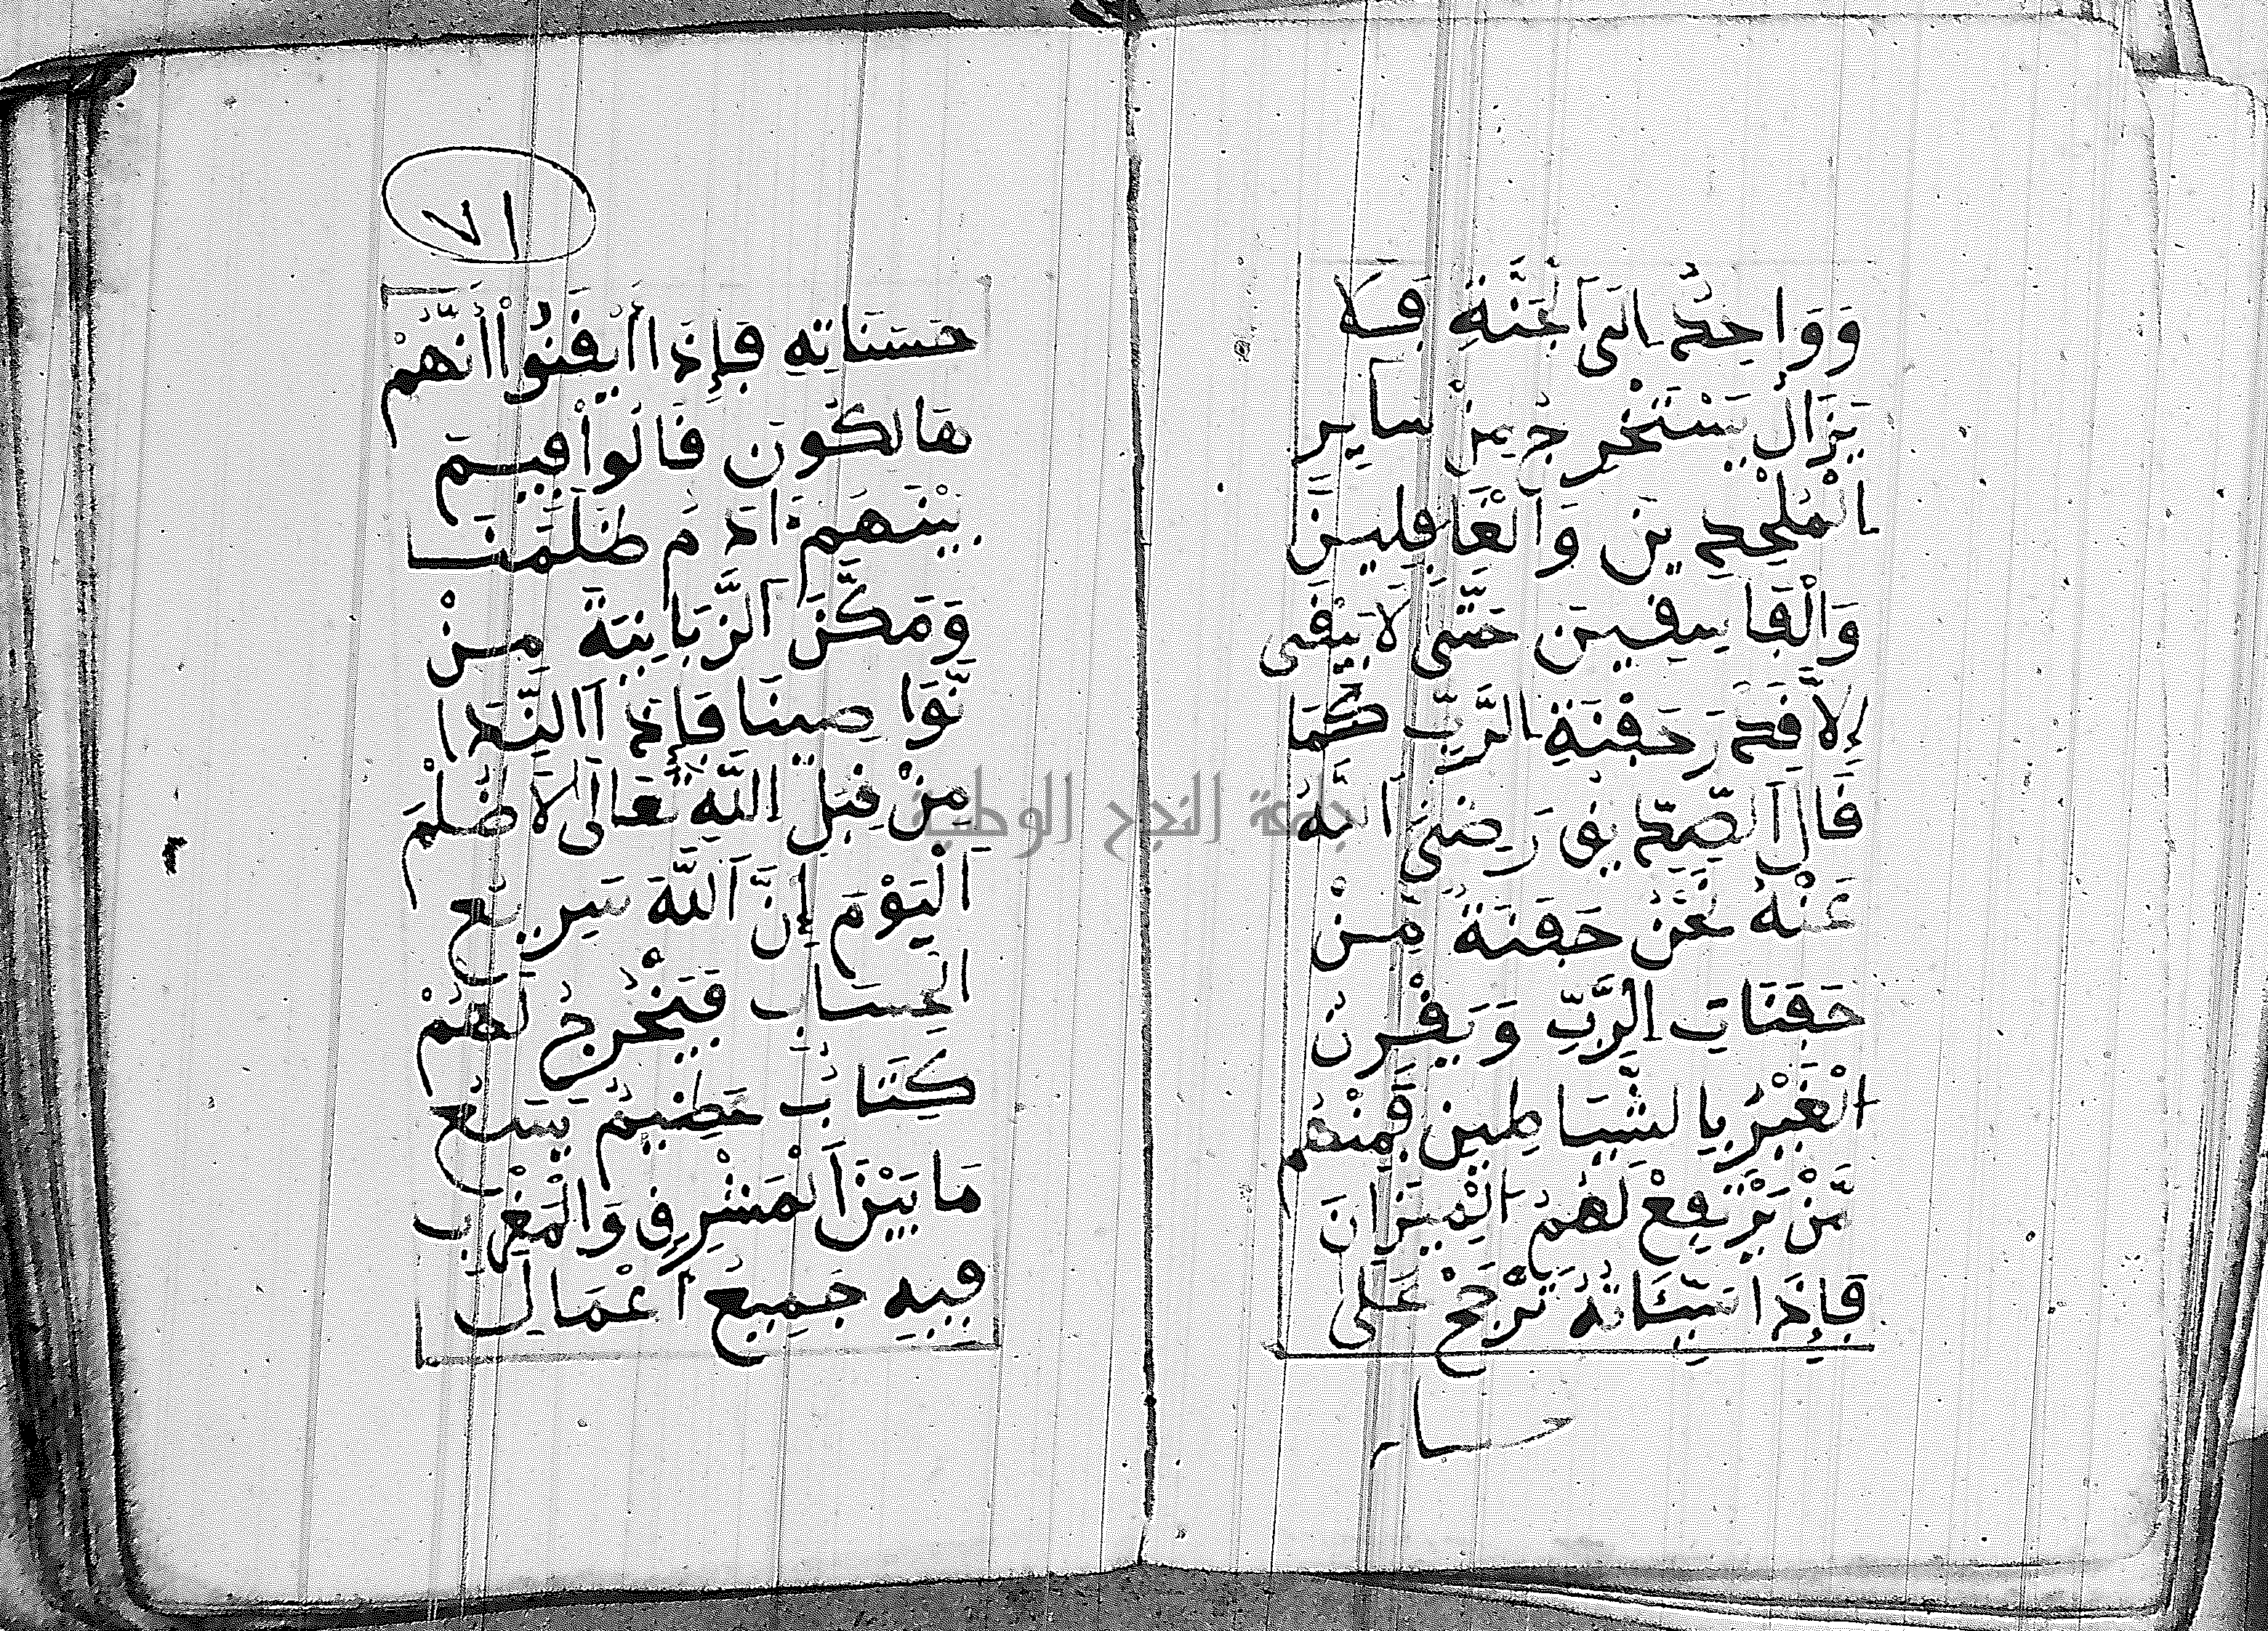 وَوَاحِدٌ الَى اَلْجَنَّةِ فَلَا
يَزَالُ يَسْتَخْرِجُ مِنْ سَايِرِ
الْمُلْحِدِينَ وَالْغَافِلِينَ
وَالْفَاسِقِينَ حَتَّى لَا يَبْقَى
إِلَّا قَدْرَ حَفْنَةِ الرَّبِّ كَمَا
قَالَ اَلصِّدِّيقُ رَضِيَ اَللَّهُ
عَنْهُ نَحْنُ حَفْنَةٌ مِّنْ
حَفَنَاتِ الرَّبِّ وَيَقْرِنُ
الْغَيْرُ بِالشَّيَاطِينِ فَمِنْهُم
مَّنْ يَرْتَفِعْ لَهُمُ الْمِيزَانَ
فَإِذَا سَيِّئَاتُهُ تَرْجَحُ عَلَى
حسنا
٧١
حَسَنَاتِهِ فَإِذَا أَيْقَنُواْ أَنَّهُمْ
هَالِكُونَ قَالُواْ فِيمَ
بَيْنَهُمْ ءَادَمُ ظَلَمَنَا
وَمَكَّنَ اَلزَّبَانِيَةَ مِنْ
نَّوَاصِينَا فَإِذَا اَلنِّدَا
مِنْ قِبَلِ اللَّهِ تَعَالَى لَا ظُلْمَ
الْيَوْمَ إِنَّ اَللَّهَ سَرِيعُ
الْحِسَابِ فَيَخْرُجُ لَهُمْ
كِتَابٌ عَظِيمٌ يَسَعُ
مَا بَيْنَ اَلْمَشْرِقِ وَالْمَغْرِبِ
فِيهِ جَمِيعُ أَعْمَالِ
جامعة النجاح الوطنية